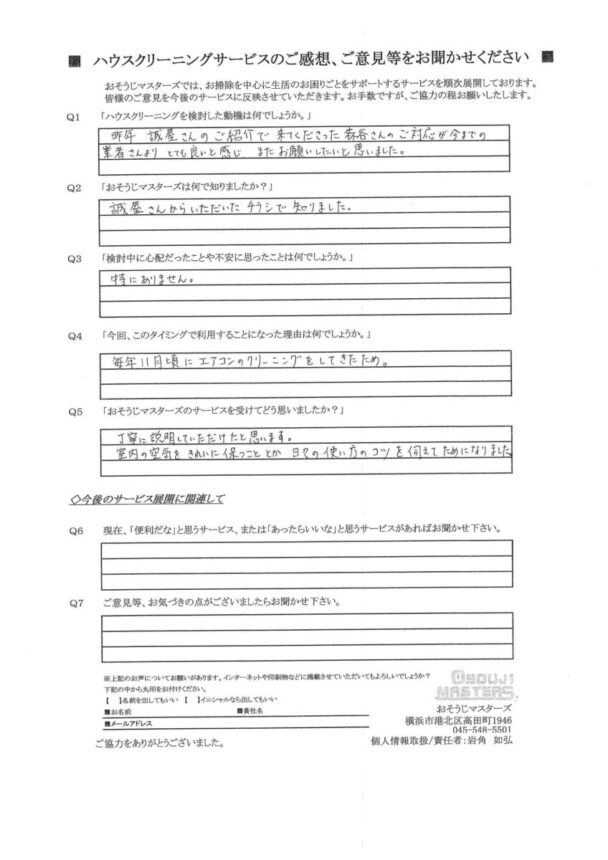 ■ ハウスクリーニングサービスのご感想、ご意見等をお聞かせください ■
おそうじマスターズでは、お掃除を中心に生活のお困りごとをサポートするサービスを順次展開しております。
皆様のご意見を今後のサービスに反映させていただきます。お手数ですが、ご協力の程お願いしたします。
Q1 「ハウスクリーニングを検討した動機は何でしょうか。」
昨年 誠屋さんのご紹介で 来てくださった 森谷さんのご対応が今までの
業者さんより とても良いと感じ またお願いしたいと思いました。
Q2 「おそうじマスターズは何で知りましたか？」
誠屋さんからいただいた チラシで 知りました。
Q3 「検討中に心配だったことや不安に思ったことは何でしょうか。」
特にありません。
Q4 「今回、このタイミングで利用することになった理由は何でしょうか。」
毎年11月頃に エアコンのクリーニングをしてきたため。
Q5 「おそうじマスターズのサービスを受けてどう思いましたか？」
丁寧に説明していただけたと思います。
室内の空気を きれいに 保つこととか 日々の 使い方の コツ を 伺えて ためになりました
◇今後のサービス展開に関連して
Q6 現在、「便利だな」と思うサービス、または「あったらいいな」と思うサービスがあればお聞かせ下さい。
Q7 ご意見等、お気づきの点がございましたらお聞かせ下さい。
※上記のお声についてお願いがあります。インターネットや印刷物などに掲載させていただいてもよろしいでしょうか？
下記の中から丸印をお付けください。
【 】名前を出してもいい 【 】イニシャルなら出してもいい
■お名前 ■貴社名
■メールアドレス
ご協力をありがとうございました。
OSOUJI
MASTERS
おそうじマスターズ
横浜市港北区高田町1946
045-548-5501
個人情報取扱/責任者：岩角 如弘